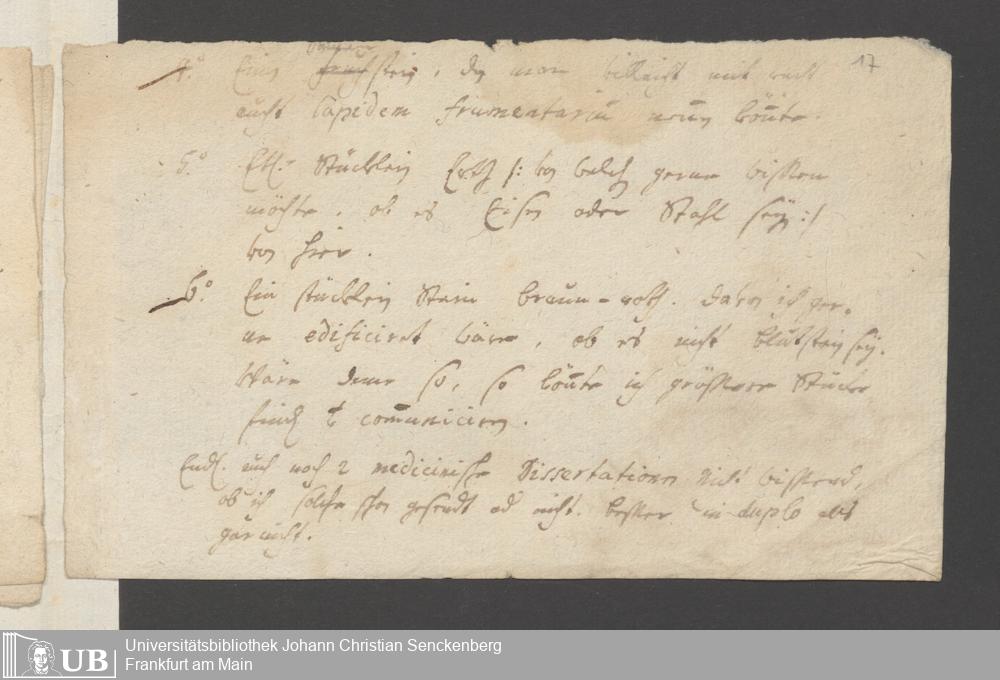 17
4.° Einen stein, den man villeicht mit recht
auch Lapidem frumentarium neñen köñte.
5.° Etl. Stücklein Ertz /: von welch gerne wissen
möchte, ob es Eisen oder Stahl seÿ :/
von hier.
6.° Ein stücklein Stein braun-roth. davon ich ger-
ne edificiret wäre, ob es nicht blutstein seÿ.
Wäre deme so, so köñte ich grössere Stücke
comuniciren.
Endl. auch noch 2 medicinische Dissertationen nicht wissend,
ob ich solche schon gesendt od nicht. besser in duplo als
gar nicht.
Universitätsbibliothek Johann Christian Senckenberg
Frankfurt am Main
UB